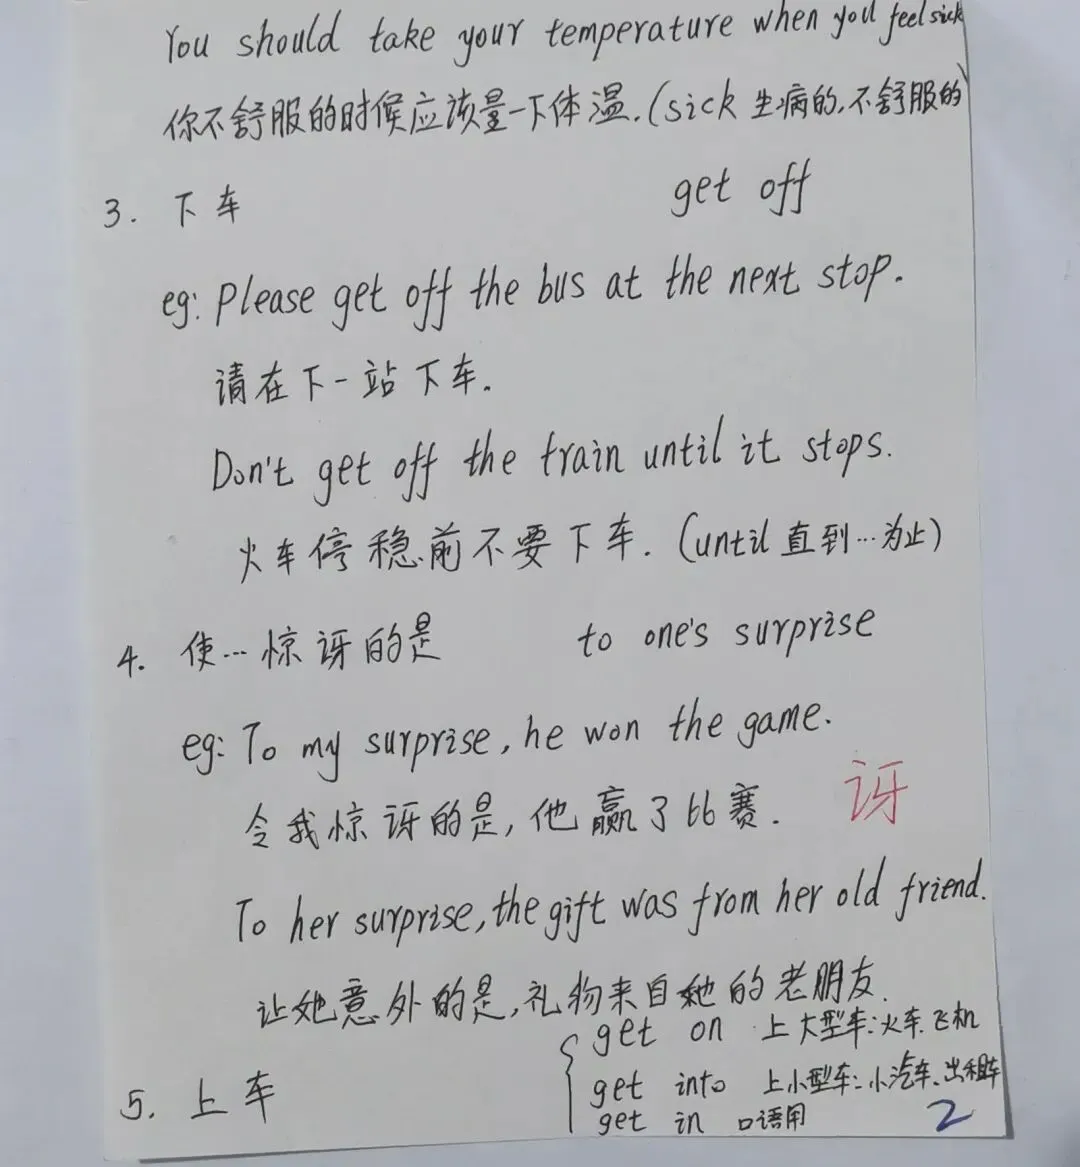 You should take your temperature when you feel sick
你不舒服的时候应该量一下体温.(sick 生病的,不舒服的)
3. 下车 get off
eg: Please get off the bus at the next stop.
请在下一站下车.
Don't get off the train until it stops.
火车停稳前不要下车. (until 直到…为止)
4. 使…惊讶的是 to one's surprise
eg: To my surprise, he won the game.
令我惊讶的是, 他赢了比赛. 讶
To her surprise, the gift was from her old friend.
让她意外的是, 礼物来自她的老朋友.
get on 上大型车:火车.飞机
5. 上车 get into 上小型车:小汽车、出租车
get in 口语用
2